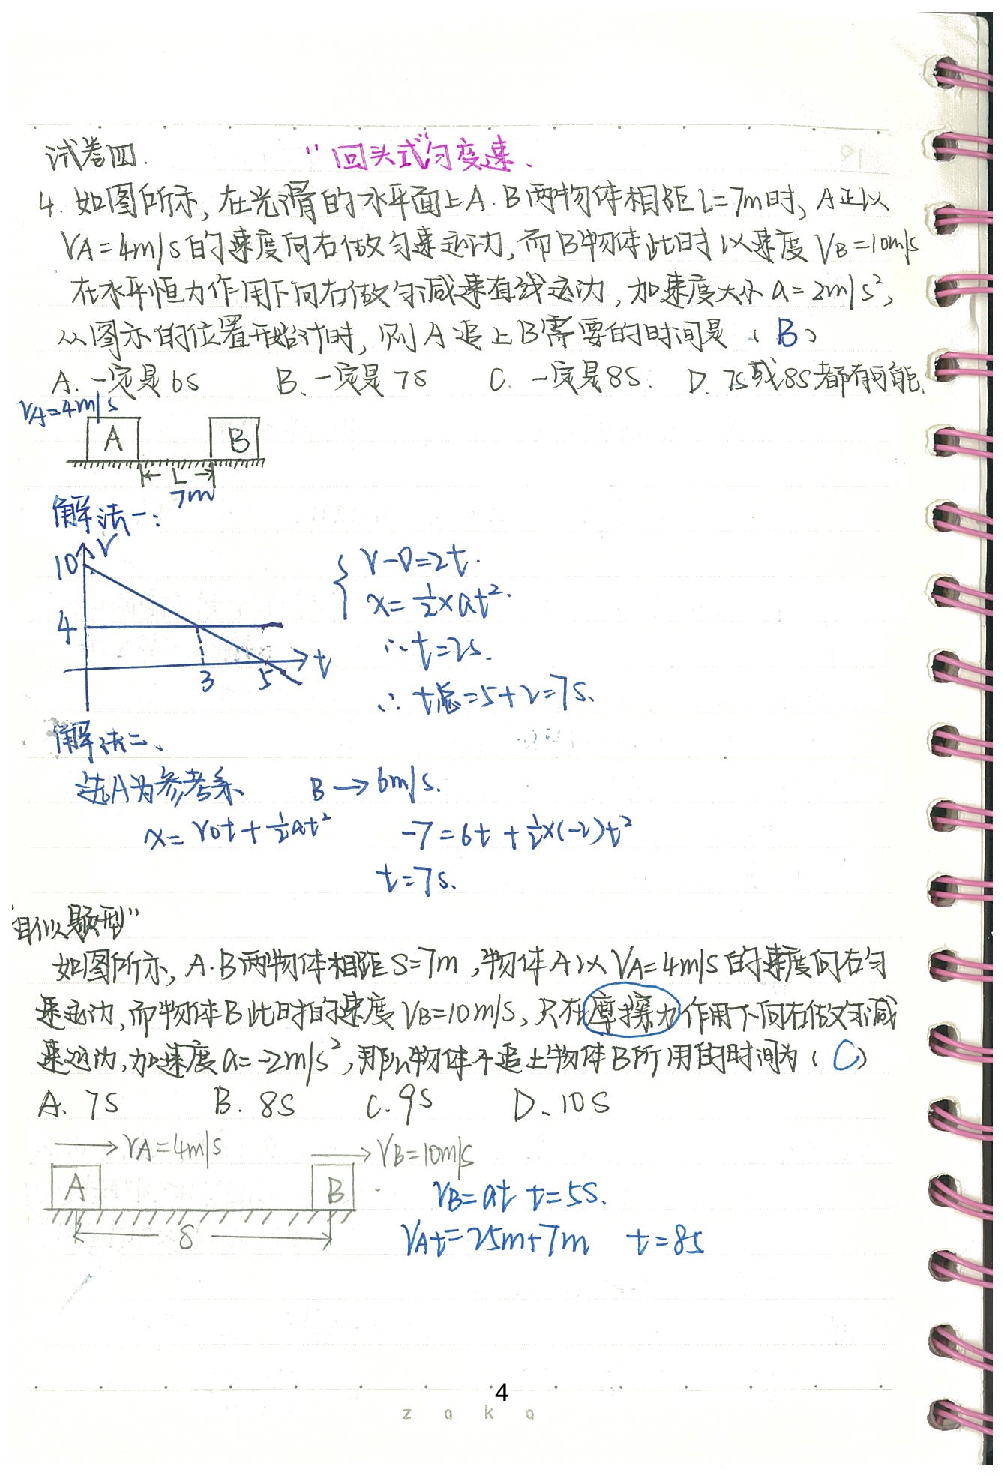 试卷四.
"回头式"匀变速、
4. 如图所示, 在光滑的水平面上A.B两物体相距L=7m时, A正以
VA=4m/s的速度向右做匀速运动, 而B物体此时以速度VB=10m/s
在水平恒力作用下向右做匀减速直线运动, 加速度大小a=2m/s²,
从图示的位置开始计时, 则A追上B需要的时间是(B)
A. 一定是6s B. 一定是7s C. 一定是8s. D. 7s或8s都有可能.
VA=4m/s
A B
L
7m
解法一:
10 V
4
3 5 t
V-0=2t.
x=½×at².
∴t=2s.
∴t总=5+2=7s.
解法二、
选A为参考系 B→6m/s.
x=V0t+½at² -7=6t+½×(-2)t²
t=7s.
相似题型"
如图所示, A.B两物体相距S=7m, 物体A以VA=4m/s的速度向右匀
速运动, 而物体B此时的速度VB=10m/s, 只在摩擦力作用下向右做匀减
速运动, 加速度a=-2m/s², 那么物体A追上物体B所用的时间为(C)
A. 7s B. 8s C. 9s D. 10s
VA=4m/s VB=10m/s
A B
S
VB=at t=5s.
VAt=25m+7m t=8s
4
zaka